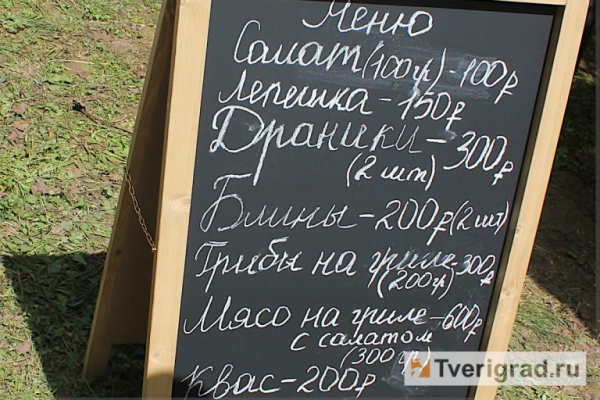 Меню
Салат (100гр) - 100₽
Лепешка - 150₽
Драники - 300₽
(2 шт)
Блины - 200₽ (2 шт)
Грибы на гриле - 300₽
(200гр)
Мясо на гриле - 600₽
с салатом
(300гр)
Квас - 200₽
Tverigrad.ru